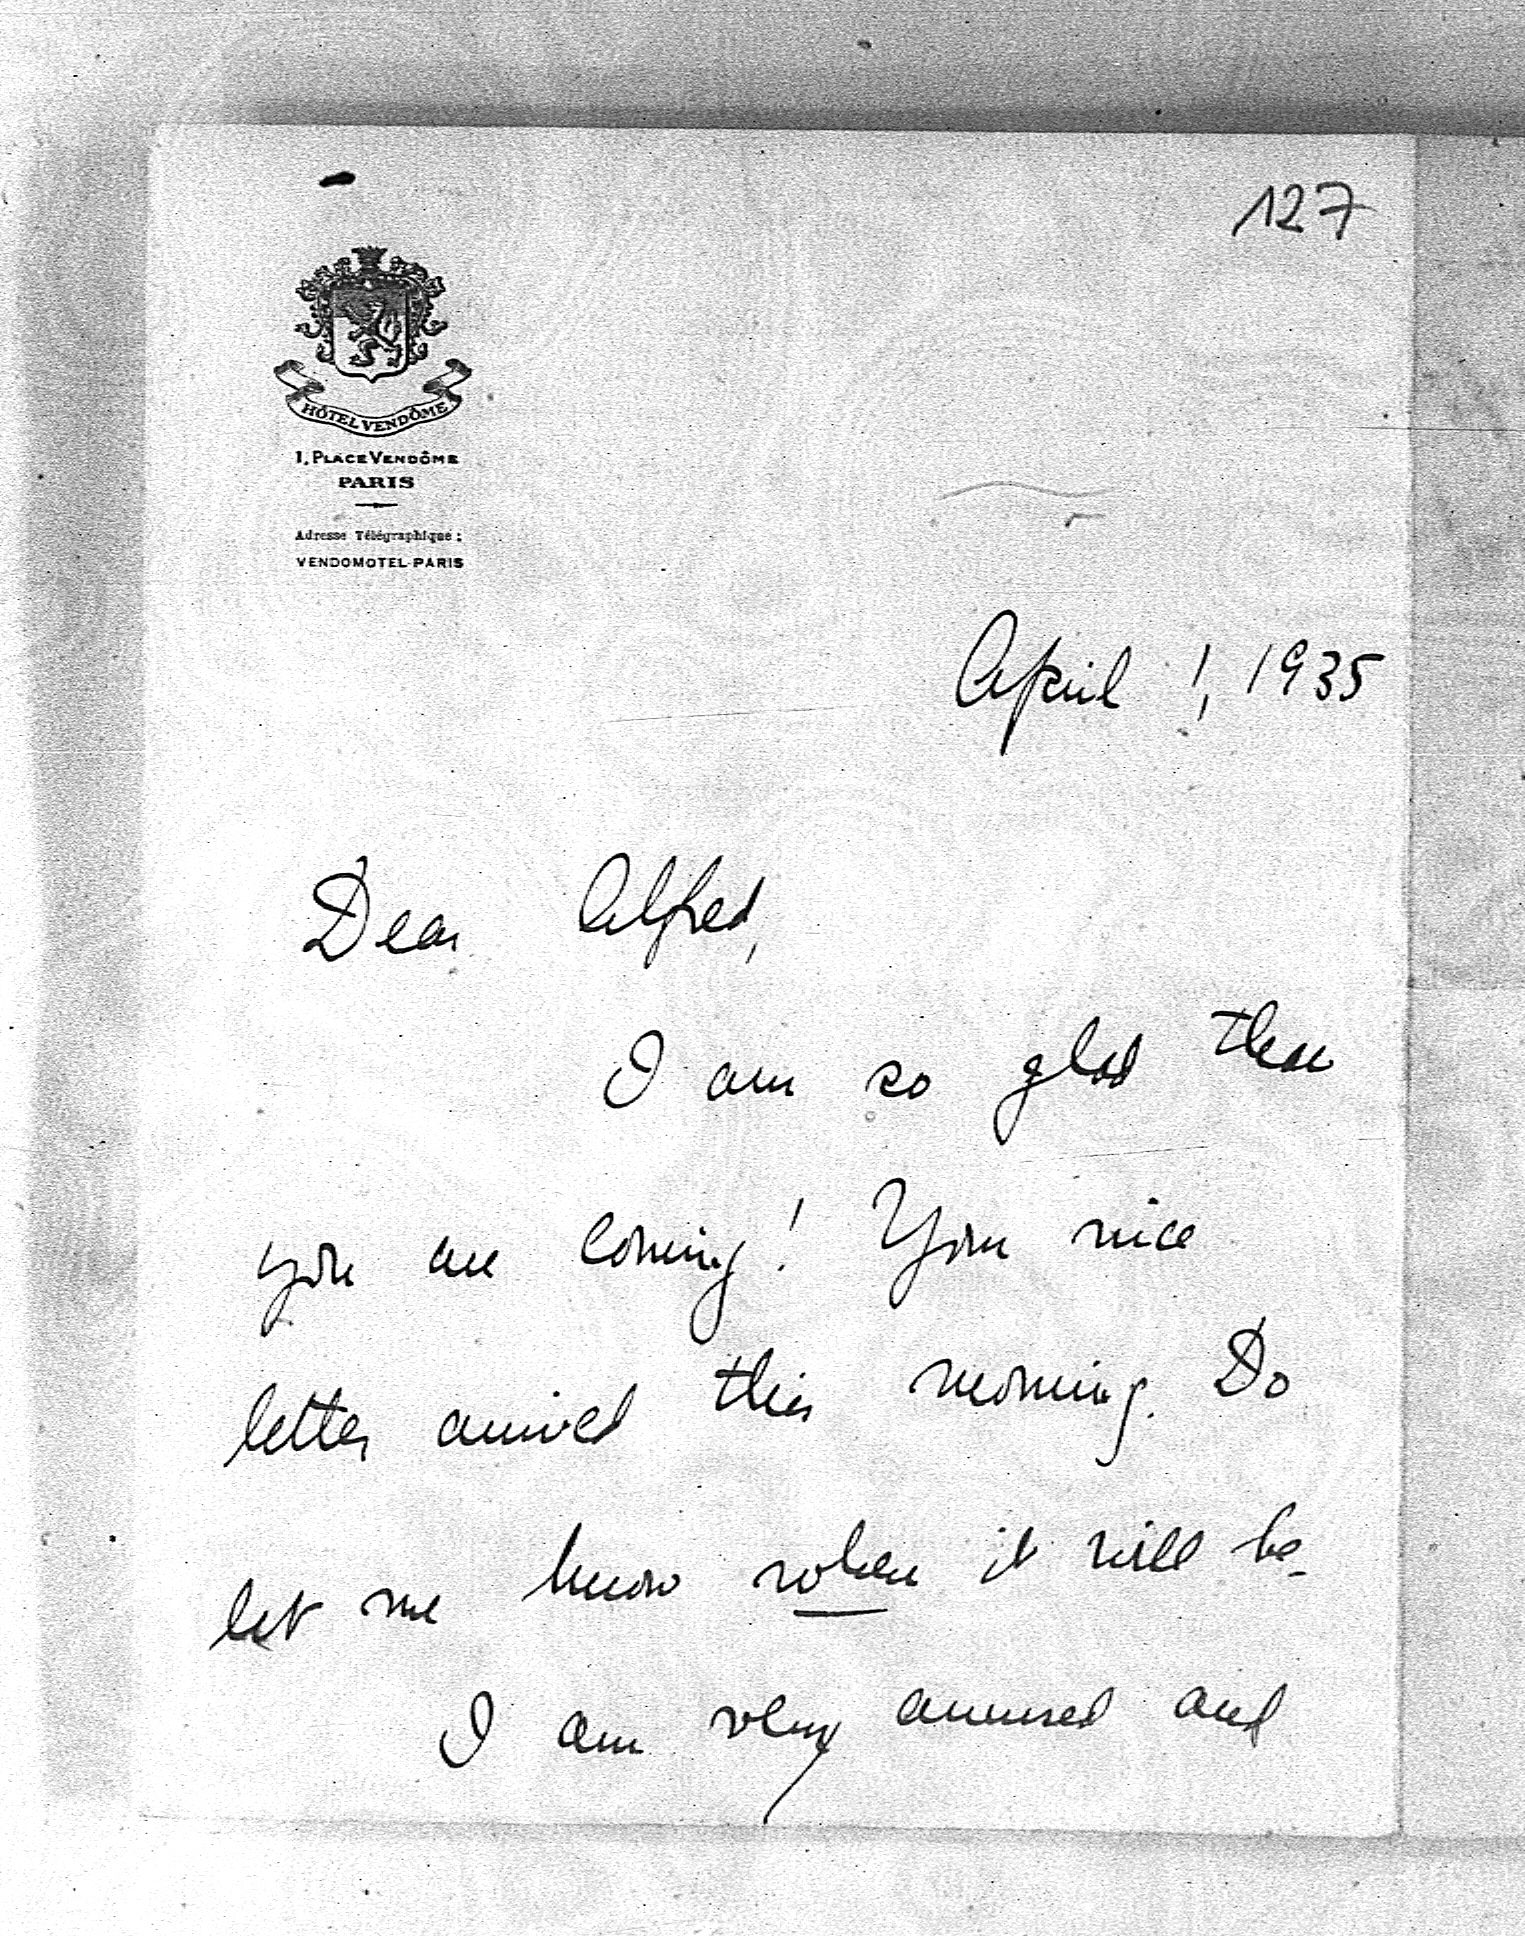 127
HÔTEL VENDÔME
1, PLACE VENDÔME
PARIS
Adresse Télégraphique :
VENDOMOTEL-PARIS
April 1, 1935
Dear Alfred,
I am so glad that
you are coming! Your nice
letter arrived this morning. Do
let me know when it will be.
I am very amused and